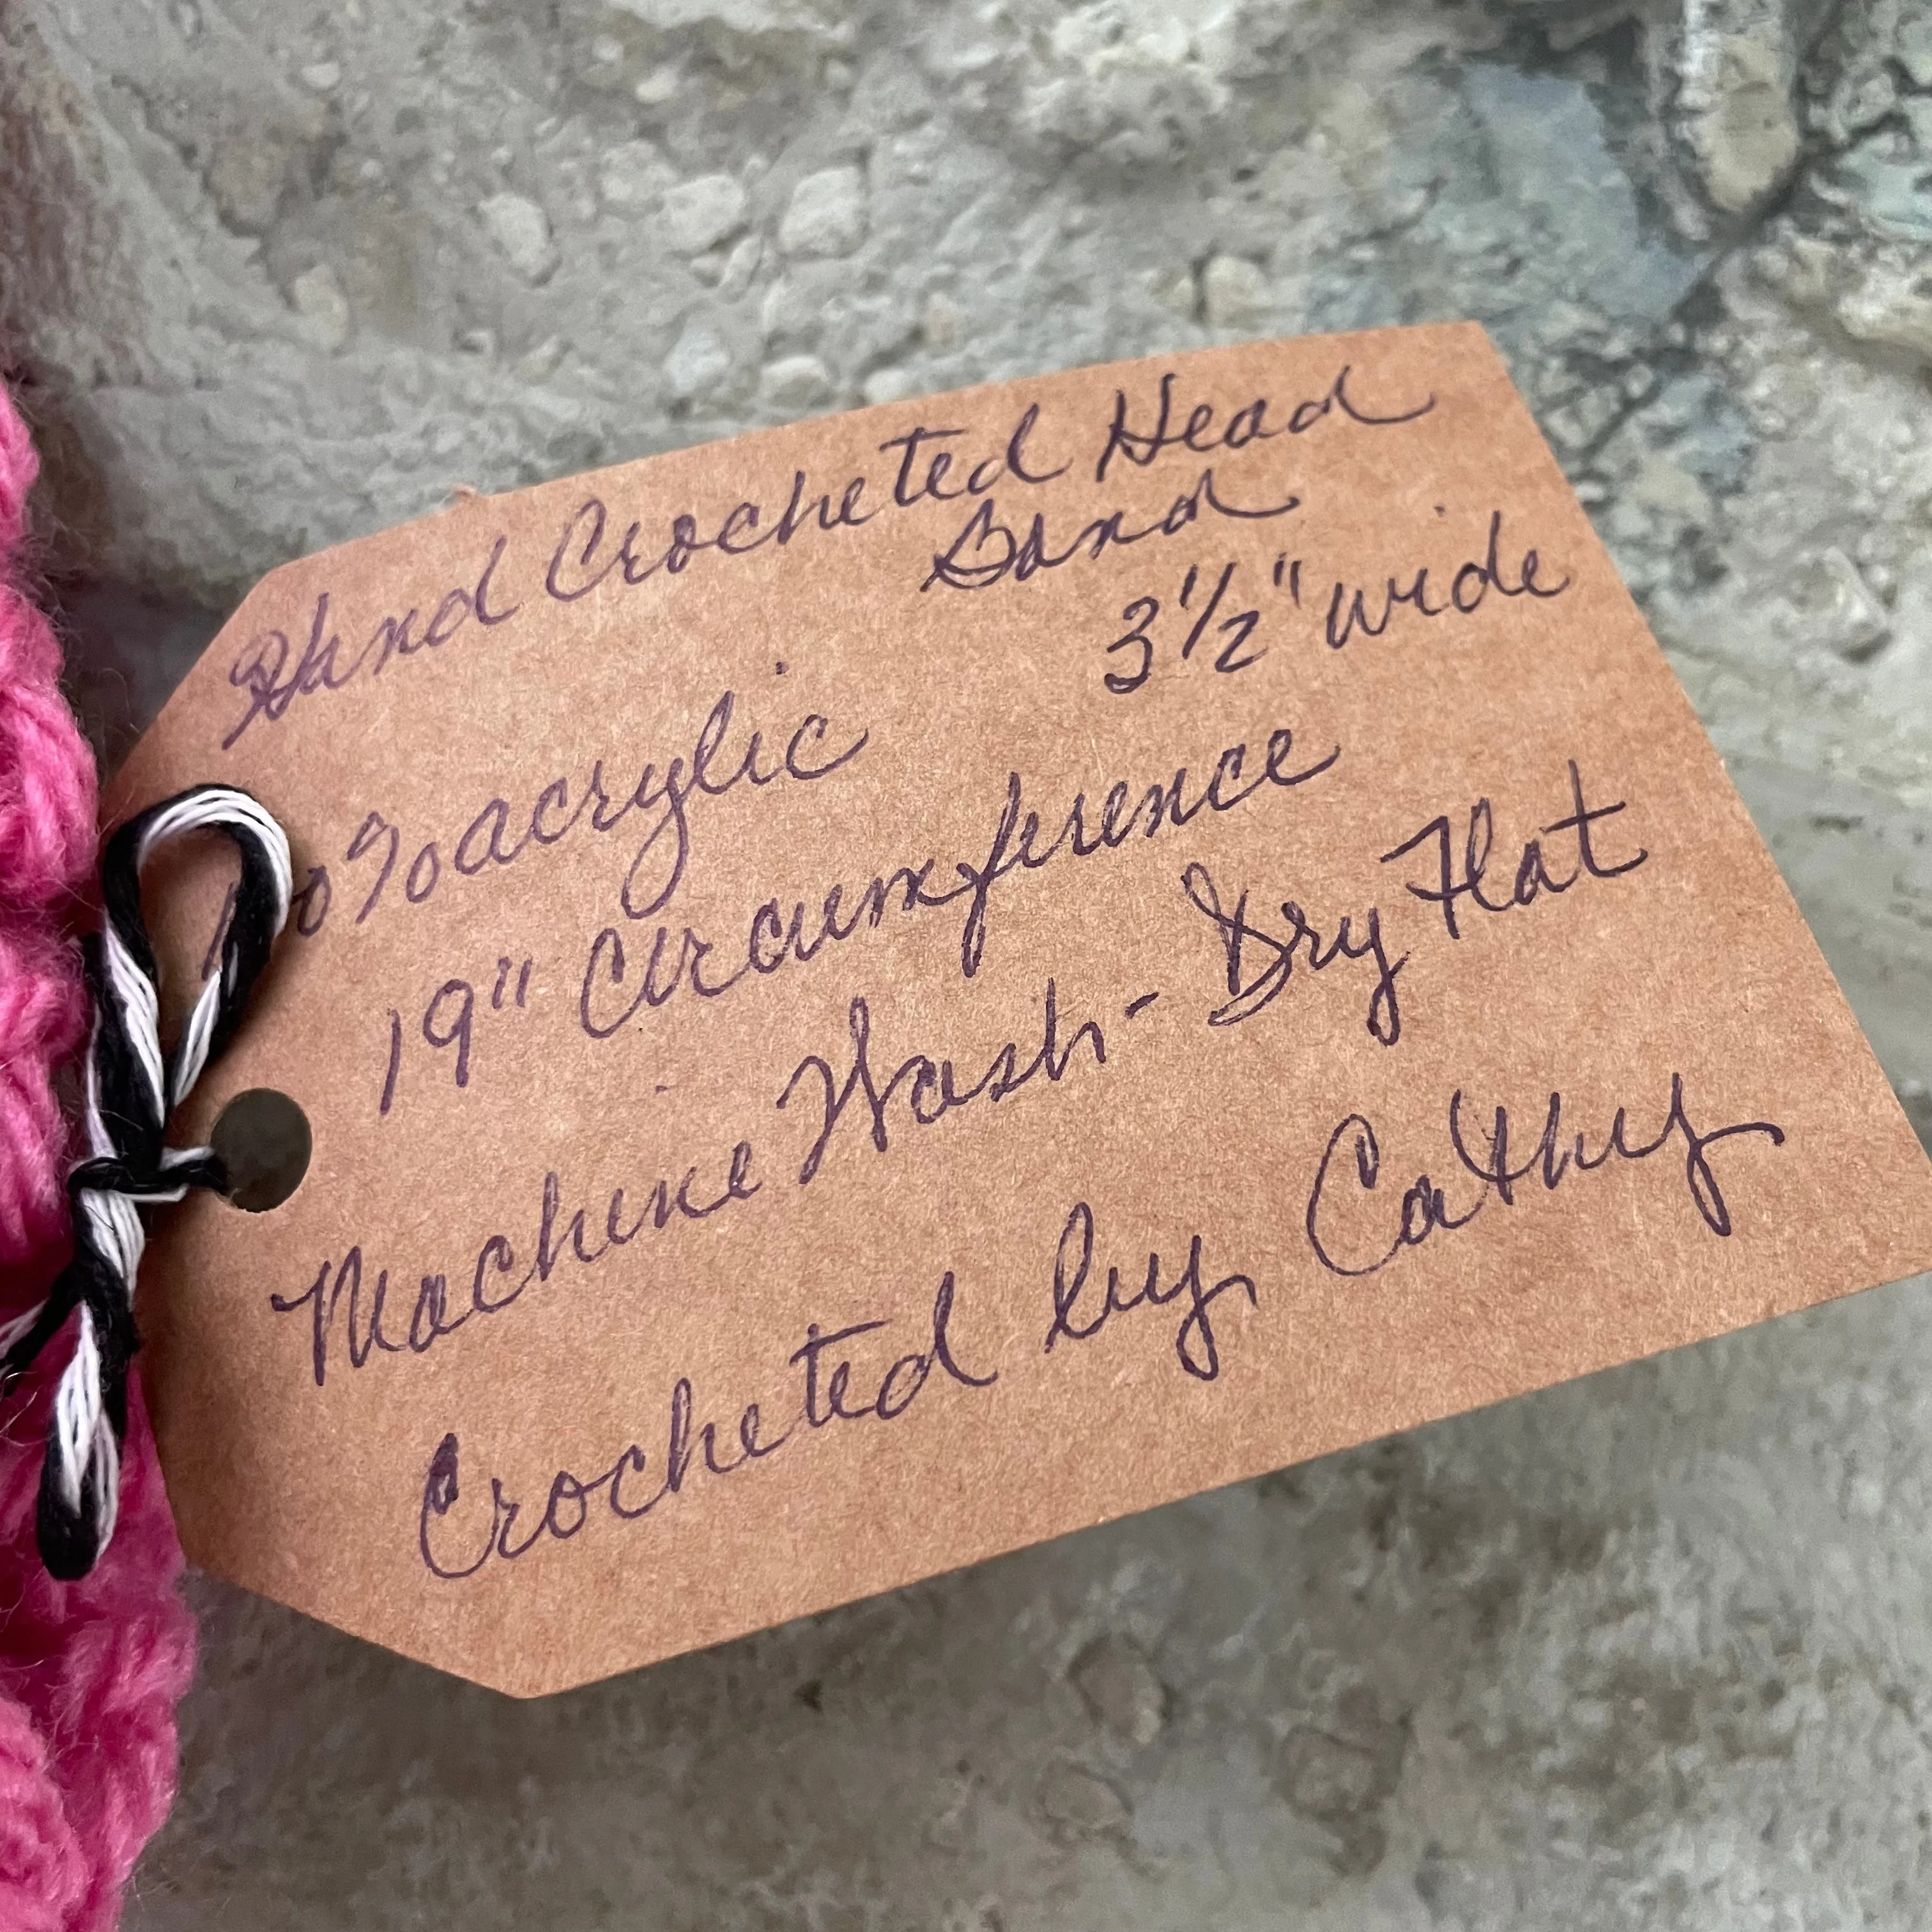 Hand Crocheted Head
Band
3 1/2" wide
100% acrylic
19" Circumference
Machine Wash - Dry Flat
Crocheted by Cathy